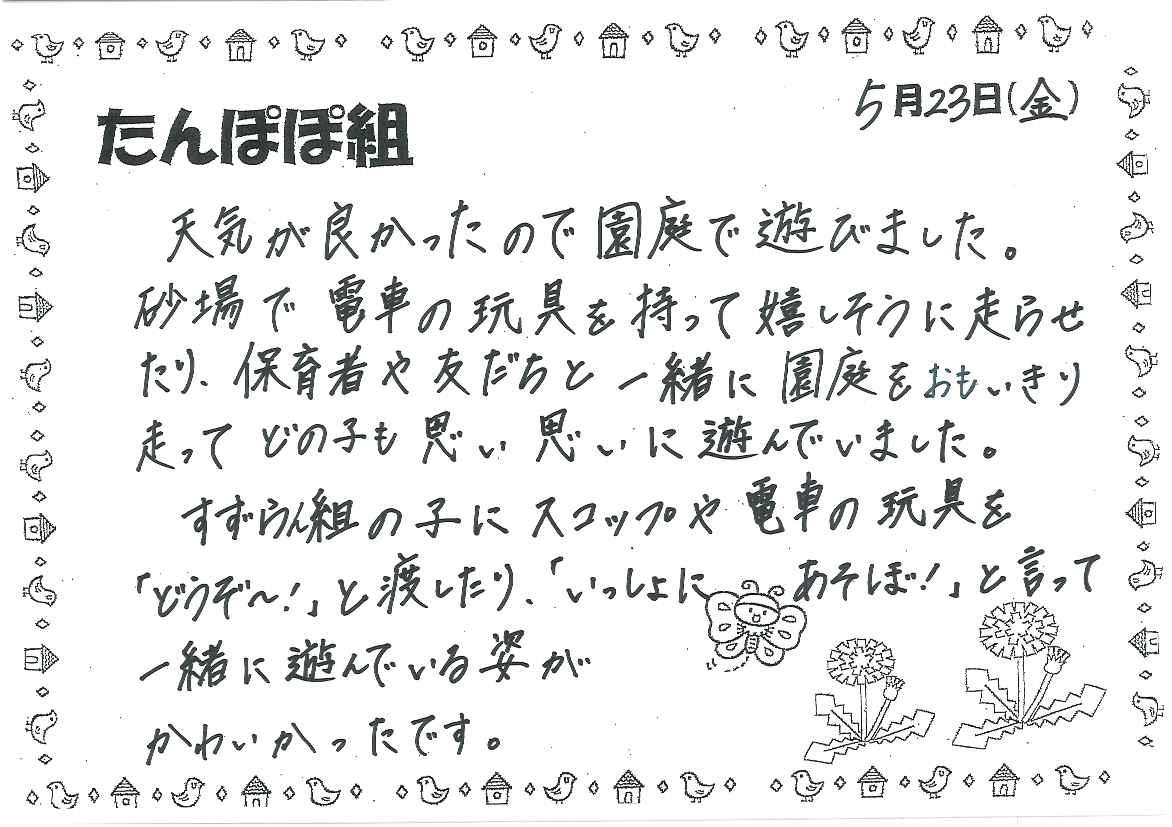 5月23日(金)
たんぽぽ組
天気が良かったので園庭で遊びました。
砂場で電車の玩具を持って嬉しそうに走らせ
たり、保育者や友だちと一緒に園庭をおもいきり
走ってどの子も思い思いに遊んでいました。
すずらん組の子にスコップや電車の玩具を
「どうぞ〜!」と渡したり、「いっしょにあそぼ!」と言って
一緒に遊んでいる姿が
かわいかったです。